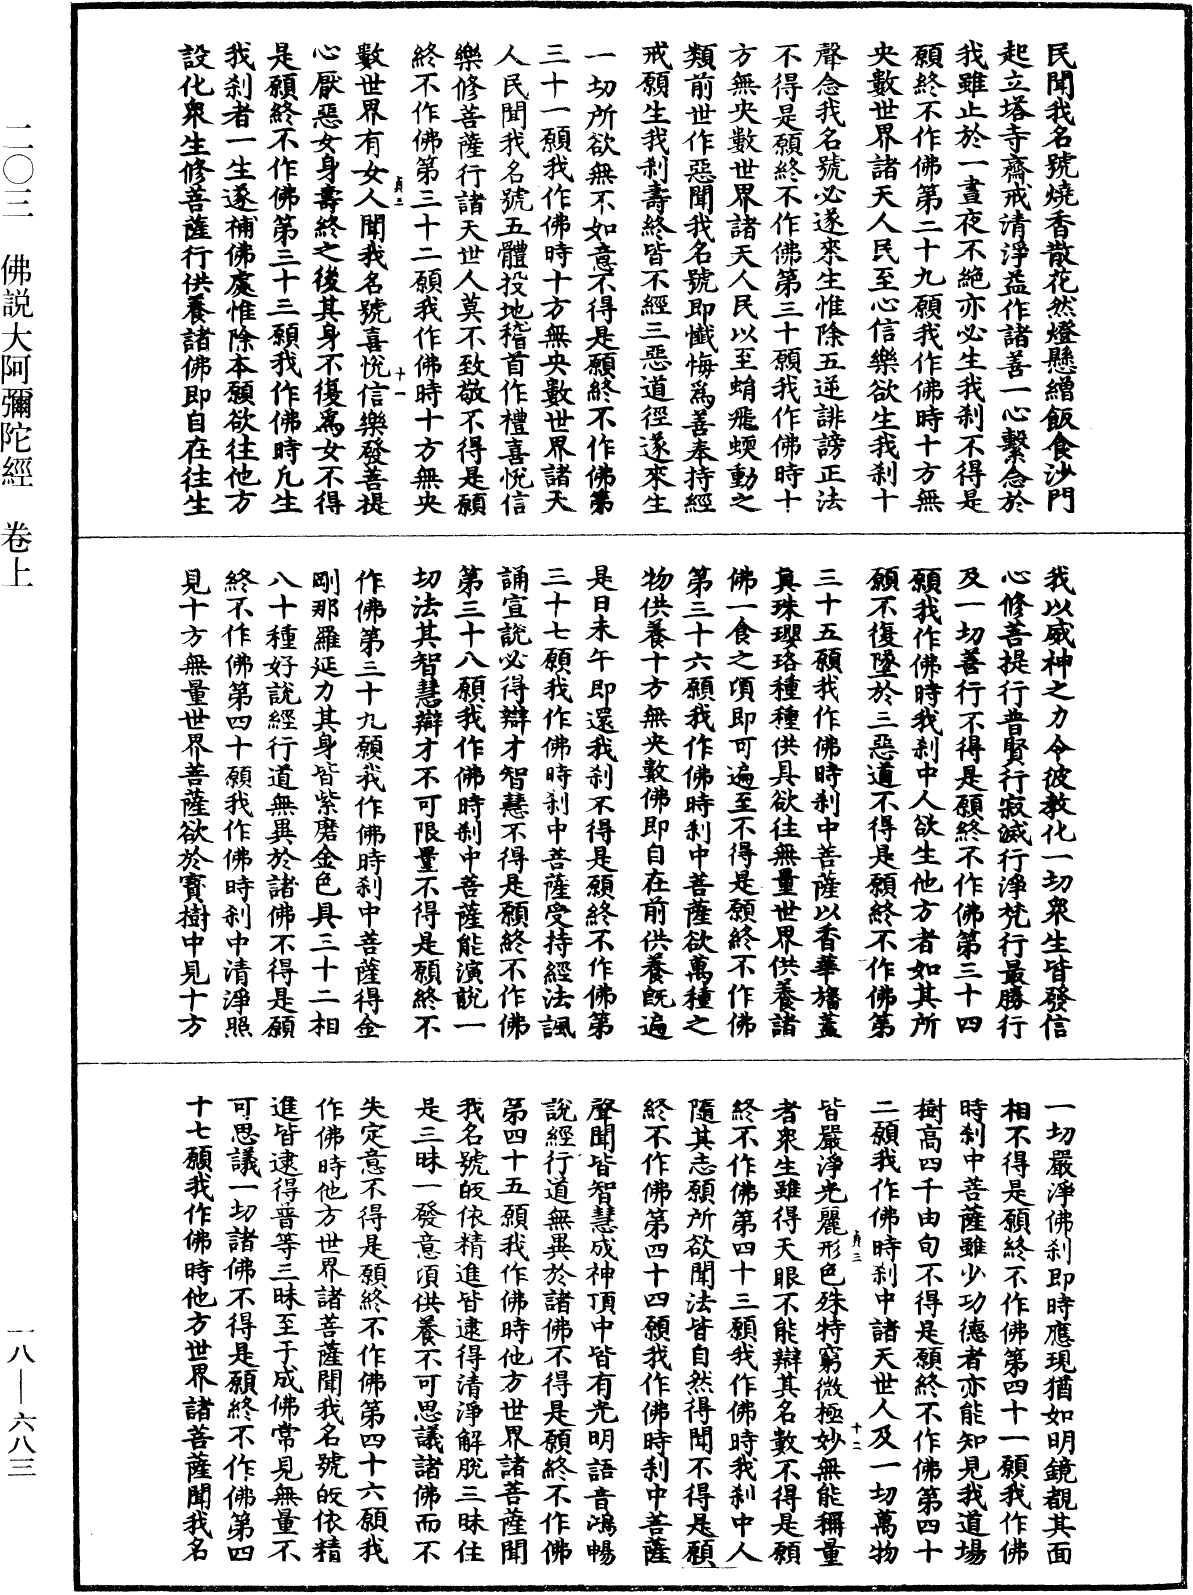 民聞我名號燒香散花然燈懸繒飯食沙門
起立塔寺齋戒清淨益作諸善一心繫念於
我雖止於一晝夜不絕亦必生我剎不得是
願終不作佛第二十九願我作佛時十方無
央數世界諸天人民至心信樂欲生我剎十
聲念我名號必遂來生惟除五逆誹謗正法
不得是願終不作佛第三十願我作佛時十
方無央數世界諸天人民以至蜎飛蝡動之
類前世作惡聞我名號即懺悔爲善奉持經
戒願生我剎壽終皆不經三惡道徑遂來生
一切所欲無不如意不得是願終不作佛第
三十一願我作佛時十方無央數世界諸天
人民聞我名號五體投地稽首作禮喜悅信
樂修菩薩行諸天世人莫不致敬不得是願
終不作佛第三十二願我作佛時十方無央
貞二
十一
數世界有女人聞我名號喜悅信樂發菩提
心厭惡女身壽終之後其身不復爲女不得
是願終不作佛第三十三願我作佛時凡生
我剎者一生遂補佛處惟除本願欲往他方
設化眾生修菩薩行供養諸佛即自在往生
我以威神之力令彼教化一切眾生皆發信
心修菩提行普賢行寂滅行淨梵行最勝行
及一切善行不得是願終不作佛第三十四
願我作佛時我剎中人欲生他方者如其所
願不復墜於三惡道不得是願終不作佛第
三十五願我作佛時剎中菩薩以香華旛蓋
真珠瓔珞種種供具欲往無量世界供養諸
佛一食之頃即可遍至不得是願終不作佛
第三十六願我作佛時剎中菩薩欲萬種之
物供養十方無央數佛即自在前供養既遍
是日未午即還我剎不得是願終不作佛第
三十七願我作佛時剎中菩薩受持經法諷
誦宣說必得辯才智慧不得是願終不作佛
第三十八願我作佛時剎中菩薩能演說一
切法其智慧辯才不可限量不得是願終不
作佛第三十九願我作佛時剎中菩薩得金
剛那羅延力其身皆紫磨金色具三十二相
八十種好說經行道無異於諸佛不得是願
終不作佛第四十願我作佛時剎中清淨照
見十方無量世界菩薩欲於寶樹中見十方
一切嚴淨佛剎即時應現猶如明鏡覩其面
相不得是願終不作佛第四十一願我作佛
時剎中菩薩雖少功德者亦能知見我道場
樹高四千由旬不得是願終不作佛第四十
二願我作佛時剎中諸天世人及一切萬物
皆嚴淨光麗形色殊特窮微極妙無能稱量
貞三
十二
者眾生雖得天眼不能辯其名數不得是願
終不作佛第四十三願我作佛時我剎中人
隨其志願所欲聞法皆自然得聞不得是願
終不作佛第四十四願我作佛時剎中菩薩
聲聞皆智慧成神頂中皆有光明語音鴻暢
說經行道無異於諸佛不得是願終不作佛
第四十五願我作佛時他方世界諸菩薩聞
我名號皈依精進皆逮得清淨解脫三昧住
是三昧一發意頃供養不可思議諸佛而不
失定意不得是願終不作佛第四十六願我
作佛時他方世界諸菩薩聞我名號皈依精
進皆逮得普等三昧至于成佛常見無量不
可思議一切諸佛不得是願終不作佛第四
十七願我作佛時他方世界諸菩薩聞我名
二〇三 佛說大阿彌陀經 卷上
一八—六八三